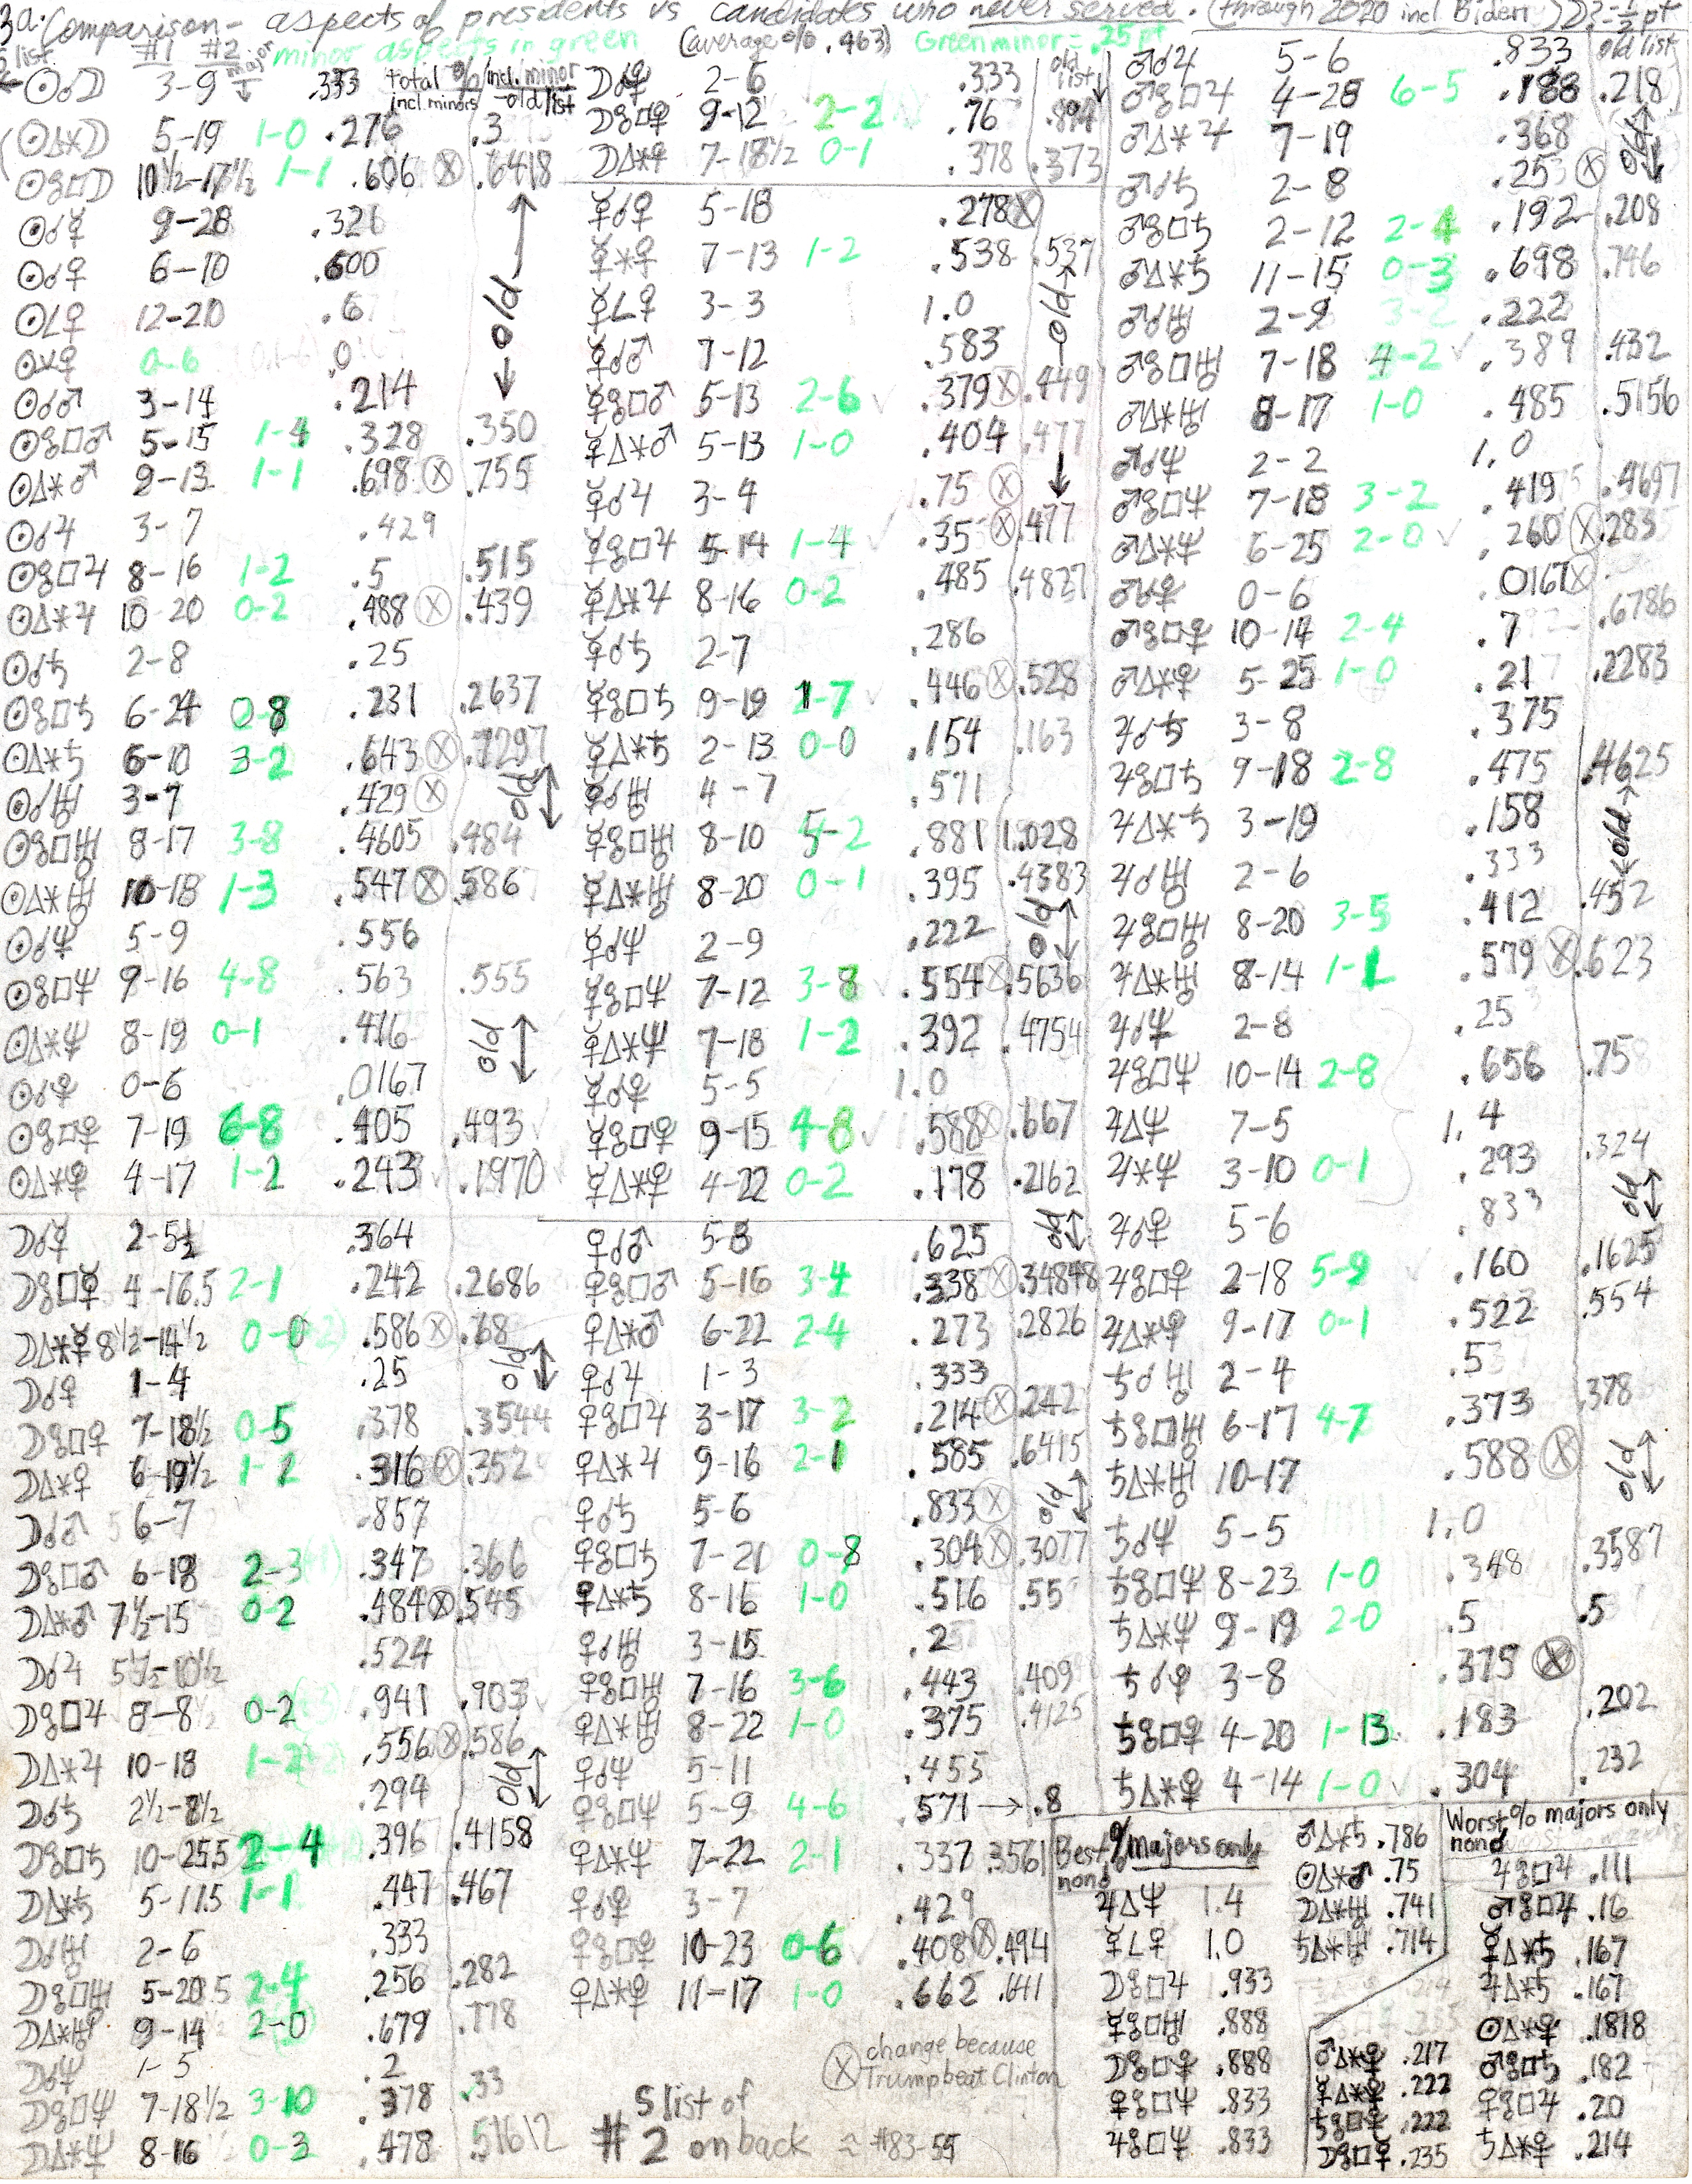 3a. Comparison - aspects of presidents vs candidates who never served. (through 2020 incl Biden)
list #1 #2 major minor aspects in green (average % .463) Green minor = .25 pt
total incl. minors % incl. minor - old list
☉☌☽ 3-9 .333
(☉△⚹☽ 5-19 1-0 .276 .3
☉☍□☽ 10½-17½ 1-1 .606 ⓧ .6418
☉☌☿ 9-28 .321
☉☌♀ 6-10 .600
☉∠♀ 12-20 .6
☉⚺♀ 0-6 0
☉☌♂ 3-14 .214
☉☍□♂ 5-15 1-4 .328 .350
☉△⚹♂ 9-13 1-1 .698 ⓧ .755
☉☌♃ 3-7 .429
☉☍□♃ 8-16 1-2 .5 .515
☉△⚹♃ 10-20 0-2 .488 ⓧ .439
☉☌♄ 2-8 .25
☉☍□♄ 6-24 0-8 .231 .2637
☉△⚹♄ 6-10 3-2 .643 ⓧ .7297
☉☌♅ 3-7 .429 ⓧ
☉☍□♅ 8-17 3-8 .4605 .484
☉△⚹♅ 10-18 1-3 .547 ⓧ .586
☉☌♆ 5-9 .556
☉☍□♆ 9-16 4-8 .563 .555
☉△⚹♆ 8-19 0-1 .416
☉☌♇ 0-6 .0167
☉☍□♇ 7-19 6-8 .405 .493
☉△⚹♇ 4-17 1-2 .243 .1970
☽☌☿ 2-5½ .364
☽☍□☿ 4-16.5 2-1 .242 .2686
☽△⚹☿ 8½-14½ 0-0 .586 ⓧ .68
☽☌♀ 1-4 .25
☽☍□♀ 7-18½ 0-5 .378 .3544
☽△⚹♀ 6-19½ 1-2 .316 ⓧ .352
☽☌♂ 6-7 .857
☽☍□♂ 6-18 2-3 .347 .366
☽△⚹♂ 7½-15 0-2 .484 ⓧ .545
☽☌♃ 5½-10½ .524
☽☍□♃ 8-8½ 0-2 .941 .903
☽△⚹♃ 10-18 1-2 .556 ⓧ .586
☽☌♄ 2½-8½ .294
☽☍□♄ 10-25.5 2-4 .396 .4158
☽△⚹♄ 5-11.5 1-1 .447 .467
☽☌♅ 2-6 .333
☽☍□♅ 5-20.5 2-4 .256 .282
☽△⚹♅ 9-14 2-0 .679 .778
☽☌♆ 1-5 .2
☽☍□♆ 7-18½ 3-10 .378 .33
☽△⚹♆ 8-16 0-3 .478 .51612
old list
☽☌♇ 2-6 .333
☽☍□♇ 9-12 2-2 .76
☽△⚹♇ 7-18½ 0-1 .378 .373
☿☌♀ 5-18 .278 ⓧ
☿⚹♀ 7-13 1-2 .538 .537
☿∠♀ 3-3 1.0
☿☌♂ 7-12 .583
☿☍□♂ 5-13 2-6 .379 ⓧ .449
☿△⚹♂ 5-13 1-0 .404 .477
☿☌♃ 3-4 .75 ⓧ
☿☍□♃ 5-14 1-4 .35 ⓧ .477
☿△⚹♃ 8-16 0-2 .485 .4827
☿☌♄ 2-7 .286
☿☍□♄ 9-19 1-7 .446 ⓧ .528
☿△⚹♄ 2-13 0-0 .154 .163
☿☌♅ 4-7 .571
☿☍□♅ 8-10 5-2 .881 1.028
☿△⚹♅ 8-20 0-1 .395 .4383
☿☌♆ 2-9 .222
☿☍□♆ 7-12 3-8 .554 ⓧ .5636
☿△⚹♆ 7-18 1-2 .392 .4754
☿☌♇ 5-5 1.0
☿☍□♇ 9-15 4-8 .588 ⓧ .667
☿△⚹♇ 4-22 0-2 .178 .2162
♀☌♂ 5-8 .625
♀☍□♂ 5-16 3-4 .338 ⓧ .34848
♀△⚹♂ 6-22 2-4 .273 .2826
♀☌♃ 1-3 .333
♀☍□♃ 3-17 3-2 .214 ⓧ .242
♀△⚹♃ 9-16 2-1 .585 .6415
♀☌♄ 5-6 .833 ⓧ
♀☍□♄ 7-21 0-8 .304 ⓧ .3077
♀△⚹♄ 8-16 1-0 .516 .55
♀☌♅ 3-15 .2
♀☍□♅ 7-16 3-6 .443 .409
♀△⚹♅ 8-22 1-0 .375 .4125
♀☌♆ 5-11 .455
♀☍□♆ 5-9 4-6 .571 → .8
♀△⚹♆ 7-22 2-1 .337 .3561
♀☌♇ 3-7 .429
♀☍□♇ 10-23 0-6 .408 ⓧ .494
♀△⚹♇ 11-17 1-0 .662 .641
ⓧ change because Trump beat Clinton
S list of #2 on back ≈ #83-55
old list
♂☌♃ 5-6 .833
♂☍□♃ 4-28 6-5 .188 .218
♂△⚹♃ 7-19 .368
♂☌♄ 2-8 .25 ⓧ
♂☍□♄ 2-12 2-4 .192 .208
♂△⚹♄ 11-15 0-3 .698 .746
♂☌♅ 2-9 .222
♂☍□♅ 7-18 4-2 .389 .432
♂△⚹♅ 8-17 1-0 .485 .5156
♂☌♆ 2-2 1.0
♂☍□♆ 7-18 3-2 .419 .4697
♂△⚹♆ 6-25 2-0 .260 ⓧ .283
♂☌♇ 0-6 .0167 ⓧ
♂☍□♇ 10-14 2-4 .7 .6786
♂△⚹♇ 5-25 1-0 .217 .2283
♃☌♄ 3-8 .375
♃☍□♄ 9-18 2-8 .475 .4625
♃△⚹♄ 3-19 .158
♃☌♅ 2-6 .333
♃☍□♅ 8-20 3-5 .412 .452
♃△⚹♅ 8-14 1-1 .579 ⓧ .623
♃☌♆ 2-8 .25
♃☍□♆ 10-14 2-8 .656 .75
♃△♆ 7-5 1.4
♃⚹♆ 3-10 0-1 .293 .324
♃☌♇ 5-6 .833
♃☍□♇ 2-18 5-9 .160 .1625
♃△⚹♇ 9-17 0-1 .522 .554
♄☌♅ 2-4 .5
♄☍□♅ 6-17 4-7 .373 .378
♄△⚹♅ 10-17 .588 ⓧ
♄☌♆ 5-5 1.0
♄☍□♆ 8-23 1-0 .348 .3587
♄△⚹♆ 9-19 2-0 .5 .5
♄☌♇ 3-8 .375 ⓧ
♄☍□♇ 4-20 1-13 .183 .202
♄△⚹♇ 4-14 1-0 .304 .232
Best % majors only non☌
♃△♆ 1.4
☿∠♀ 1.0
☽☍□♃ .933
☿☍□♅ .888
☽☍□♇ .888
♀☍□♇ .833
♃☍□♆ .833
♂△⚹♄ .786
☉△⚹♂ .75
☽△⚹♅ .741
♄△⚹♅ .714
Worst % majors only non☌
♃☍□♃ .111
♂☍□♃ .16
☿△⚹♄ .167
♃△⚹♄ .167
☉△⚹♇ .1818
♂☍□♄ .182
♀☍□♃ .20
♄△⚹♇ .214
♂△⚹♇ .217
☿△⚹♇ .222
♄☍□♇ .222
☽☍□☿ .235